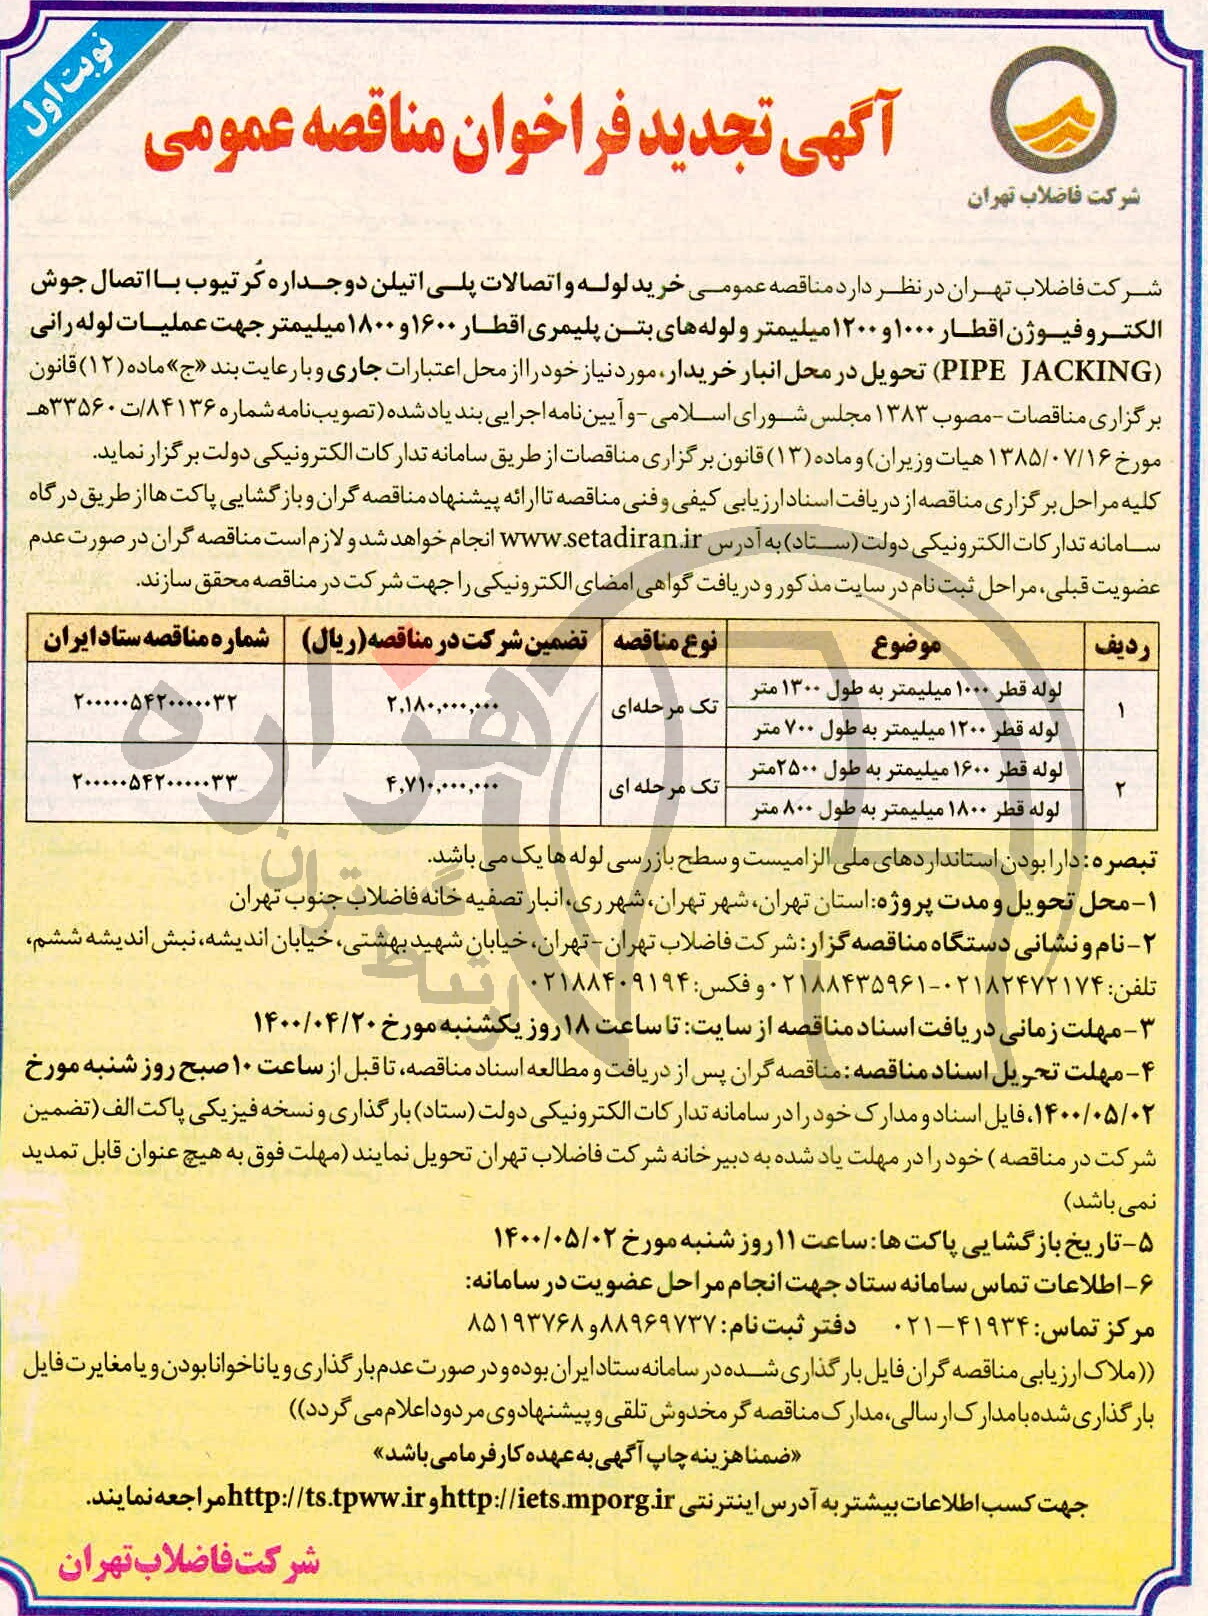 نوبت اول
شرکت فاضلاب تهران
آگهی تجدید فراخوان مناقصه عمومی
شرکت فاضلاب تهران در نظر دارد مناقصه عمومی خرید لوله و اتصالات پلی اتیلن دوجداره کُر تیوب با اتصال جوش
الکتروفیوژن اقطار ۱۰۰۰ و ۱۲۰۰ میلیمتر و لوله‌های بتن پلیمری اقطار ۱۶۰۰ و ۱۸۰۰ میلیمتر جهت عملیات لوله رانی
(PIPE JACKING) تحویل در محل انبار خریدار، مورد نیاز خود را از محل اعتبارات جاری و با رعایت بند «ج» ماده (۱۲) قانون
برگزاری مناقصات -مصوب ۱۳۸۳ مجلس شورای اسلامی -و آیین‌نامه اجرایی بند یاد شده (تصویب‌نامه شماره ۸۴۱۳۶/ت۳۳۵۶۰هـ
مورخ ۱۳۸۵/۰۷/۱۶ هیات وزیران) و ماده (۱۳) قانون برگزاری مناقصات از طریق سامانه تدارکات الکترونیکی دولت برگزار نماید.
کلیه مراحل برگزاری مناقصه از دریافت اسناد ارزیابی کیفی و فنی مناقصه تا ارائه پیشنهاد مناقصه گران و بازگشایی پاکت ها از طریق درگاه
سامانه تدارکات الکترونیکی دولت (ستاد) به آدرس www.setadiran.ir انجام خواهد شد و لازم است مناقصه گران در صورت عدم
عضویت قبلی، مراحل ثبت نام در سایت مذکور و دریافت گواهی امضای الکترونیکی را جهت شرکت در مناقصه محقق سازند.
ردیف موضوع نوع مناقصه تضمین شرکت در مناقصه (ریال) شماره مناقصه ستاد ایران
۱ لوله قطر ۱۰۰۰ میلیمتر به طول ۱۳۰۰ متر تک مرحله‌ای ۲,۱۸۰,۰۰۰,۰۰۰ ۲۰۰۰۰۰۵۴۲۰۰۰۰۰۳۲
لوله قطر ۱۲۰۰ میلیمتر به طول ۷۰۰ متر
۲ لوله قطر ۱۶۰۰ میلیمتر به طول ۲۵۰۰متر تک مرحله ای ۴,۷۱۰,۰۰۰,۰۰۰ ۲۰۰۰۰۰۵۴۲۰۰۰۰۰۳۳
لوله قطر ۱۸۰۰ میلیمتر به طول ۸۰۰ متر
تبصره: دارا بودن استانداردهای ملی الزامیست و سطح بازرسی لوله ها یک می باشد.
۱- محل تحویل و مدت پروژه: استان تهران، شهر تهران، شهر ری، انبار تصفیه خانه فاضلاب جنوب تهران
۲- نام و نشانی دستگاه مناقصه گزار: شرکت فاضلاب تهران - تهران، خیابان شهید بهشتی، خیابان اندیشه، نبش اندیشه ششم،
تلفن: ۰۲۱۸۲۴۷۲۱۷۴-۰۲۱۸۸۴۳۵۹۶۱ و فکس: ۰۲۱۸۸۴۰۹۱۹۴
۳- مهلت زمانی دریافت اسناد مناقصه از سایت: تا ساعت ۱۸ روز یکشنبه مورخ ۱۴۰۰/۰۴/۲۰
۴- مهلت تحویل اسناد مناقصه: مناقصه گران پس از دریافت و مطالعه اسناد مناقصه، تا قبل از ساعت ۱۰ صبح روز شنبه مورخ
۱۴۰۰/۰۵/۰۲، فایل اسناد و مدارک خود را در سامانه تدارکات الکترونیکی دولت (ستاد) بارگذاری و نسخه فیزیکی پاکت الف (تضمین
شرکت در مناقصه ) خود را در مهلت یاد شده به دبیرخانه شرکت فاضلاب تهران تحویل نمایند (مهلت فوق به هیچ عنوان قابل تمدید
نمی باشد)
۵- تاریخ بازگشایی پاکت ها: ساعت ۱۱ روز شنبه مورخ ۱۴۰۰/۰۵/۰۲
۶- اطلاعات تماس سامانه ستاد جهت انجام مراحل عضویت در سامانه:
مرکز تماس: ۴۱۹۳۴-۰۲۱ دفتر ثبت نام: ۸۸۹۶۹۷۳۷ و ۸۵۱۹۳۷۶۸
((ملاک ارزیابی مناقصه گران فایل بارگذاری شده در سامانه ستاد ایران بوده و در صورت عدم بارگذاری و یا ناخوانا بودن و یا مغایرت فایل
بارگذاری شده با مدارک ارسالی، مدارک مناقصه گر مخدوش تلقی و پیشنهاد وی مردود اعلام می گردد))
«ضمنا هزینه چاپ آگهی به عهده کارفرما می باشد»
جهت کسب اطلاعات بیشتر به آدرس اینترنتی http://iets.mporg.ir و http://ts.tpww.ir مراجعه نمایند.
شرکت فاضلاب تهران